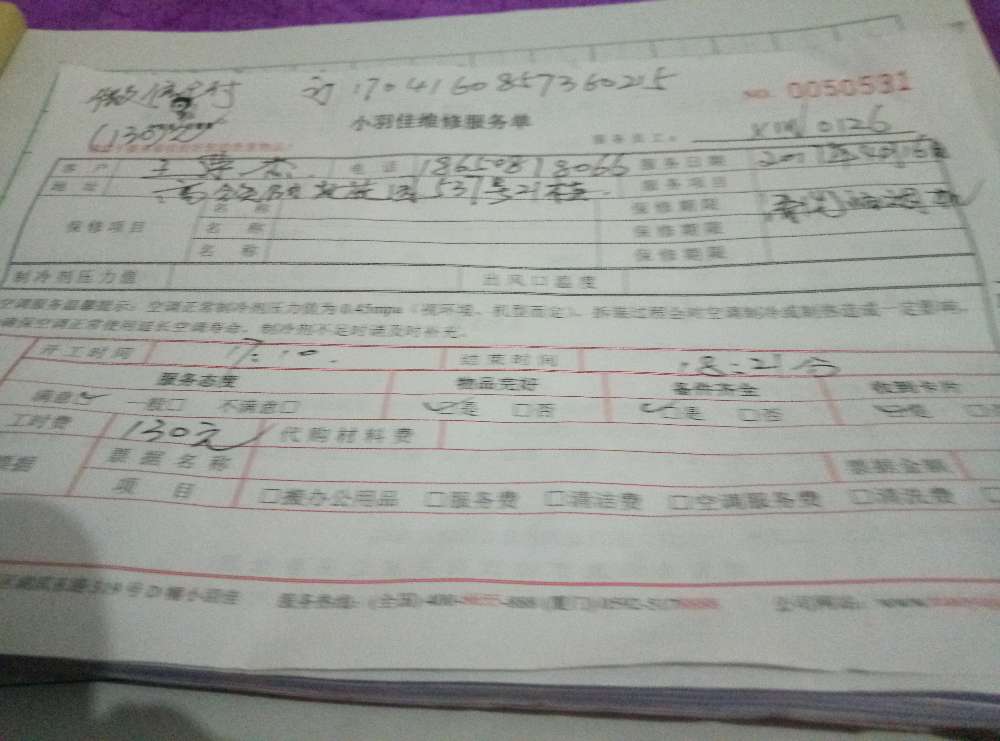 微信支付 订:1704160857360215 NO. 0050531
(130元)
小羽佳维修服务单
服务员工: XM 0126
客户 王 杰 电话 18650818066 服务日期 2017年4月16日
地址 537号21 服务项目 清洗油烟机
保修项目 名称 保修期限
名称 保修期限
名称 保修期限
制冷剂压力值 出风口温度
空调服务温馨提示:空调正常制冷剂压力值为0.45mpa(视环境、机型而定)、拆装过程会对空调制冷或制热造成一定影响,
确保空调正常使用延长空调寿命,制冷剂不足时请及时补充。
开工时间 17:10. 结束时间 18:21分
服务态度 物品完好 备件齐全 收到卡片
满意 一般□ 不满意□ 是 □否 □是 □否 是
工时费 130元 代购材料费
票据 票据名称 票据金额
项目 □搬办公用品 □服务费 □清洁费 □空调服务费 □清洗费
号D幢小羽佳 服务热线:(全国)400- -888 (厦门)0592-517 公司网站:www.